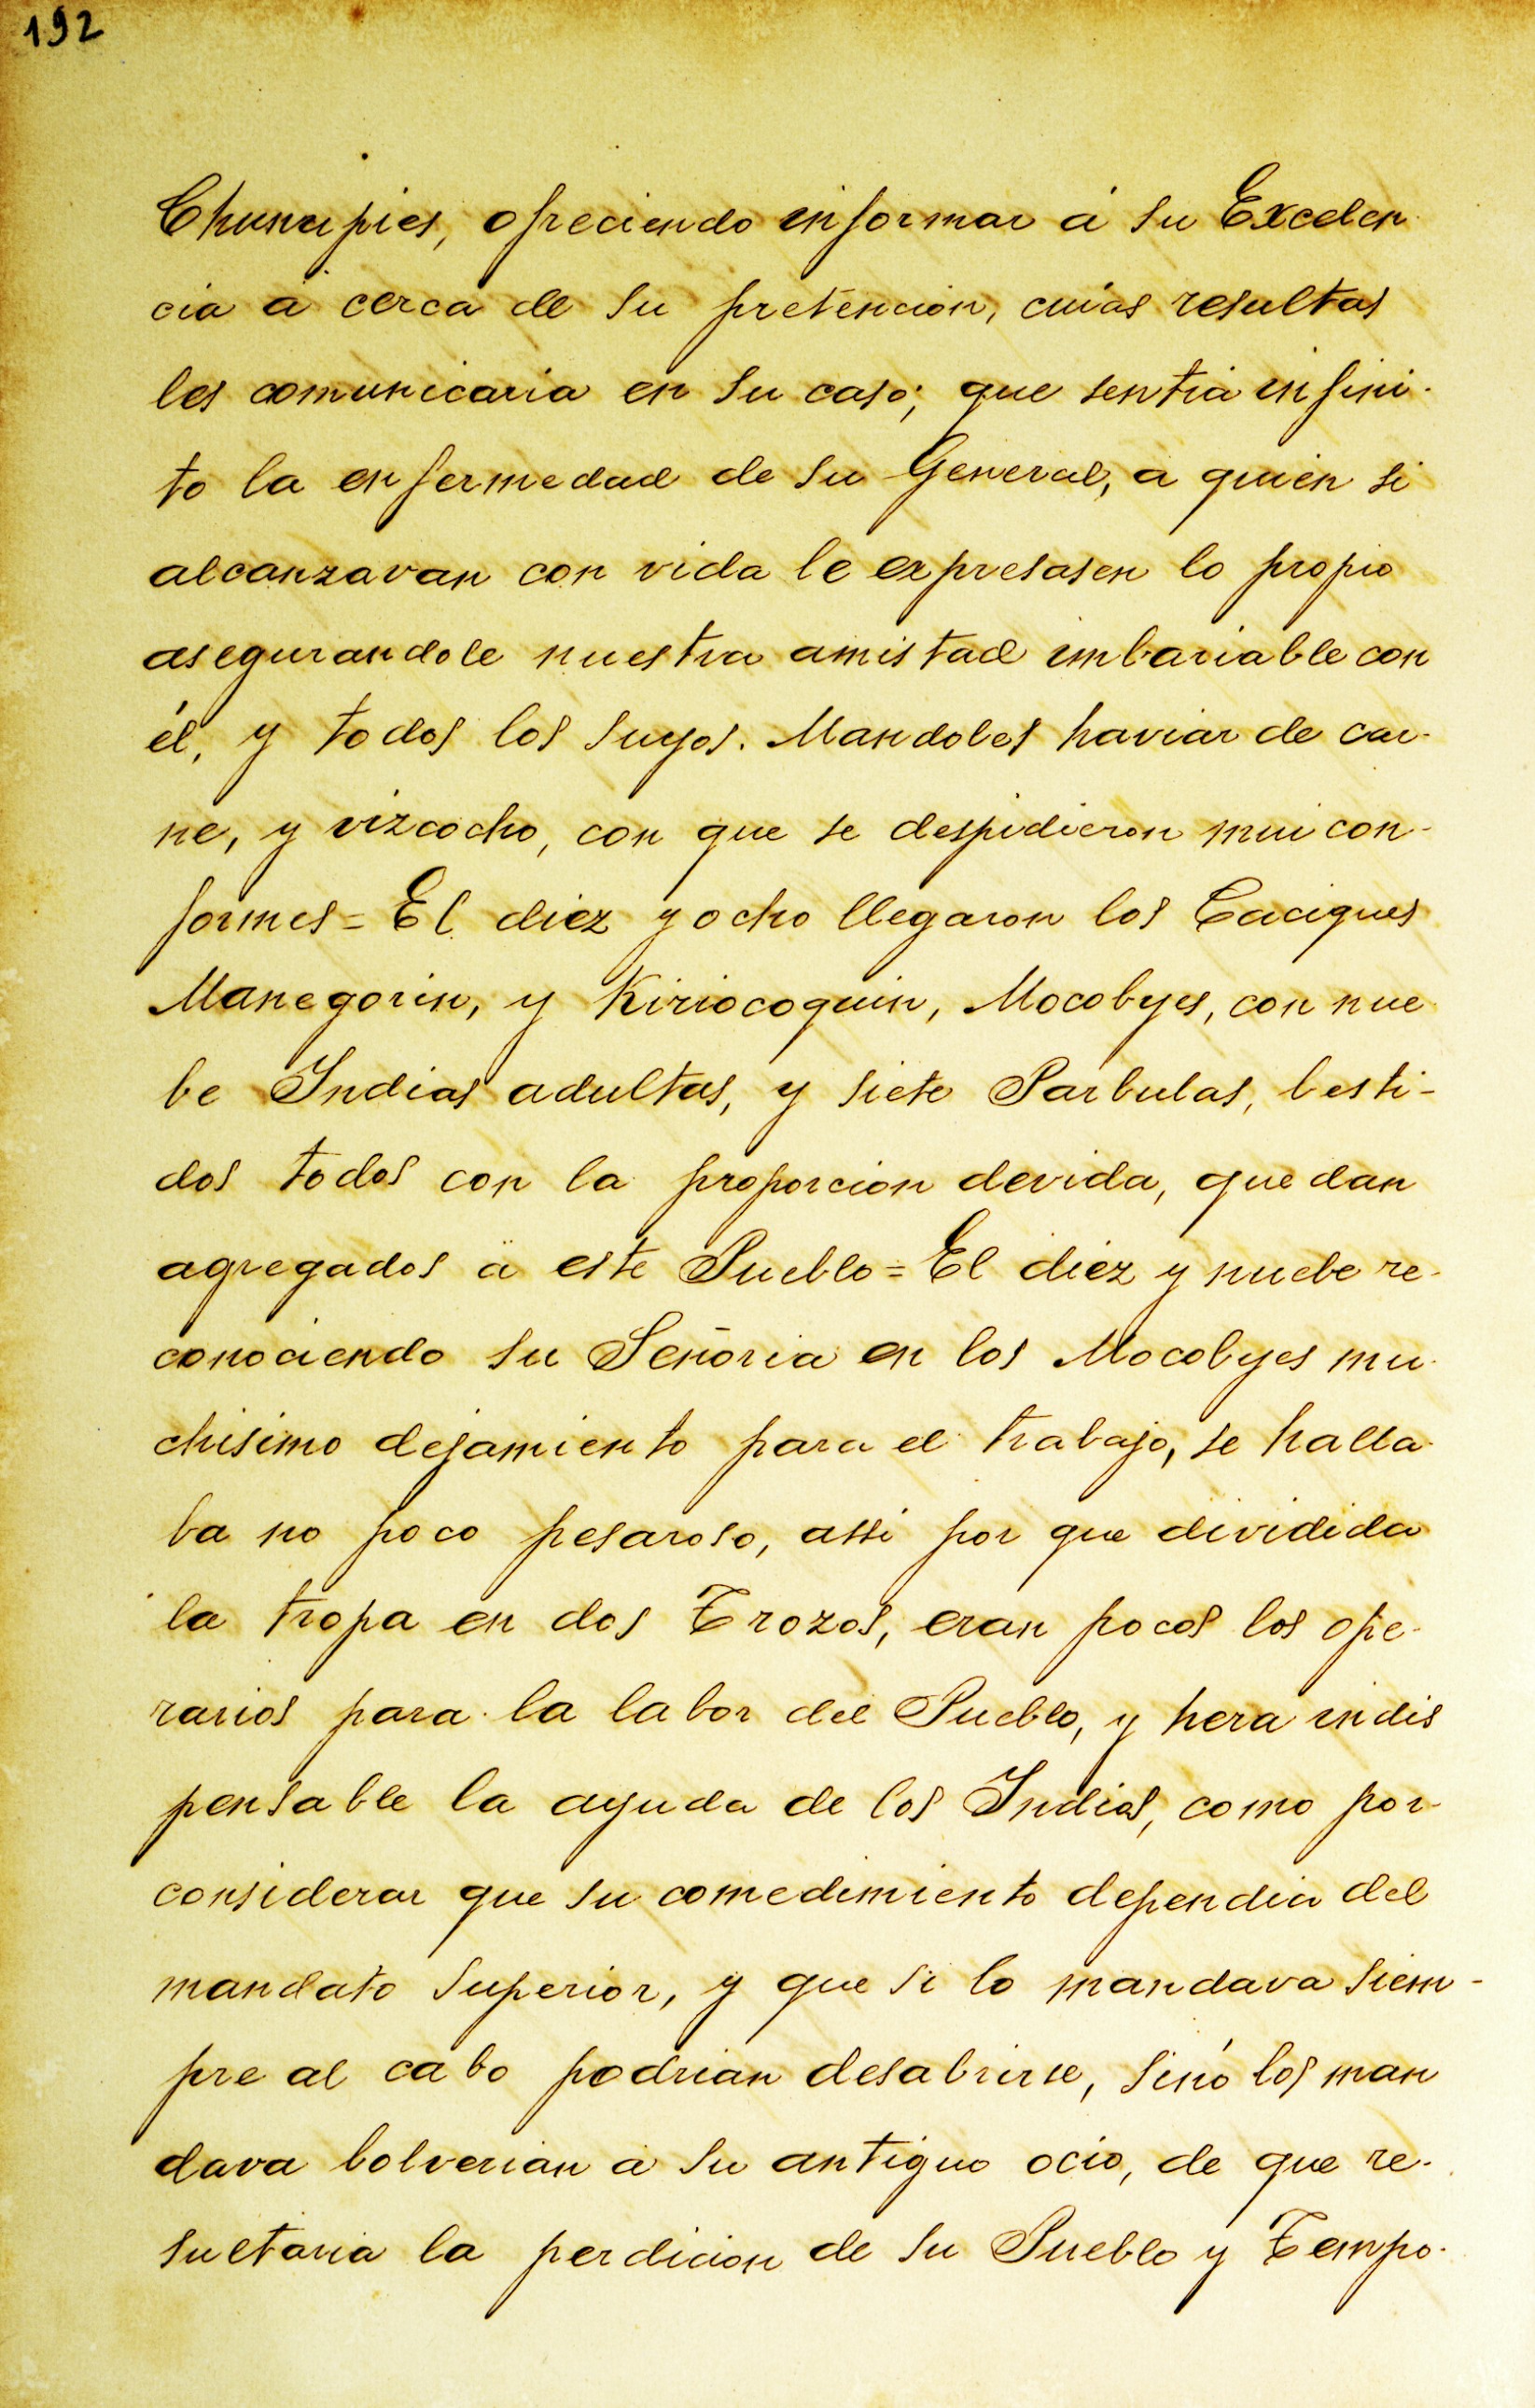 192
Chunupies, ofreciendo informar á su Excelen
cia á cerca de su pretencion, cuias resultas
les comunicaria en su caso; que sentia infini-
to la enfermedad de su General, a quien si
alcanzavan con vida le expresasen lo propio
asegurandole nuestra amistad imbariable con
él, y todos los suyos. Mandoles haviar de car-
ne, y vizcocho, con que se despidieron mui con-
formes = El diez y ocho llegaron los Caciques
Manegorin, y Kiriocoquin, Mocobyes, con nue
be Indias adultas, y siete Parbulas, besti-
dos todos con la proporcion devida, quedan
agregados á este Pueblo = El diez y nuebe re-
conociendo su Señoria en los Mocobyes mu-
chisimo dejamiento para el trabajo, se halla-
ba no poco pesaroso, assi por que dividida
la tropa en dos Trozos, eran pocos los ope-
rarios para la labor del Pueblo, y hera indis
pensable la ayuda de los Indios, como por
considerar que su comedimiento dependia del
mandato Superior, y que si lo mandava siem-
pre al cabo podrian desabrirse, sinó los man
dava bolverian á su antiguo ocio, de que re-
sultaria la perdicion de su Pueblo y Tempo-